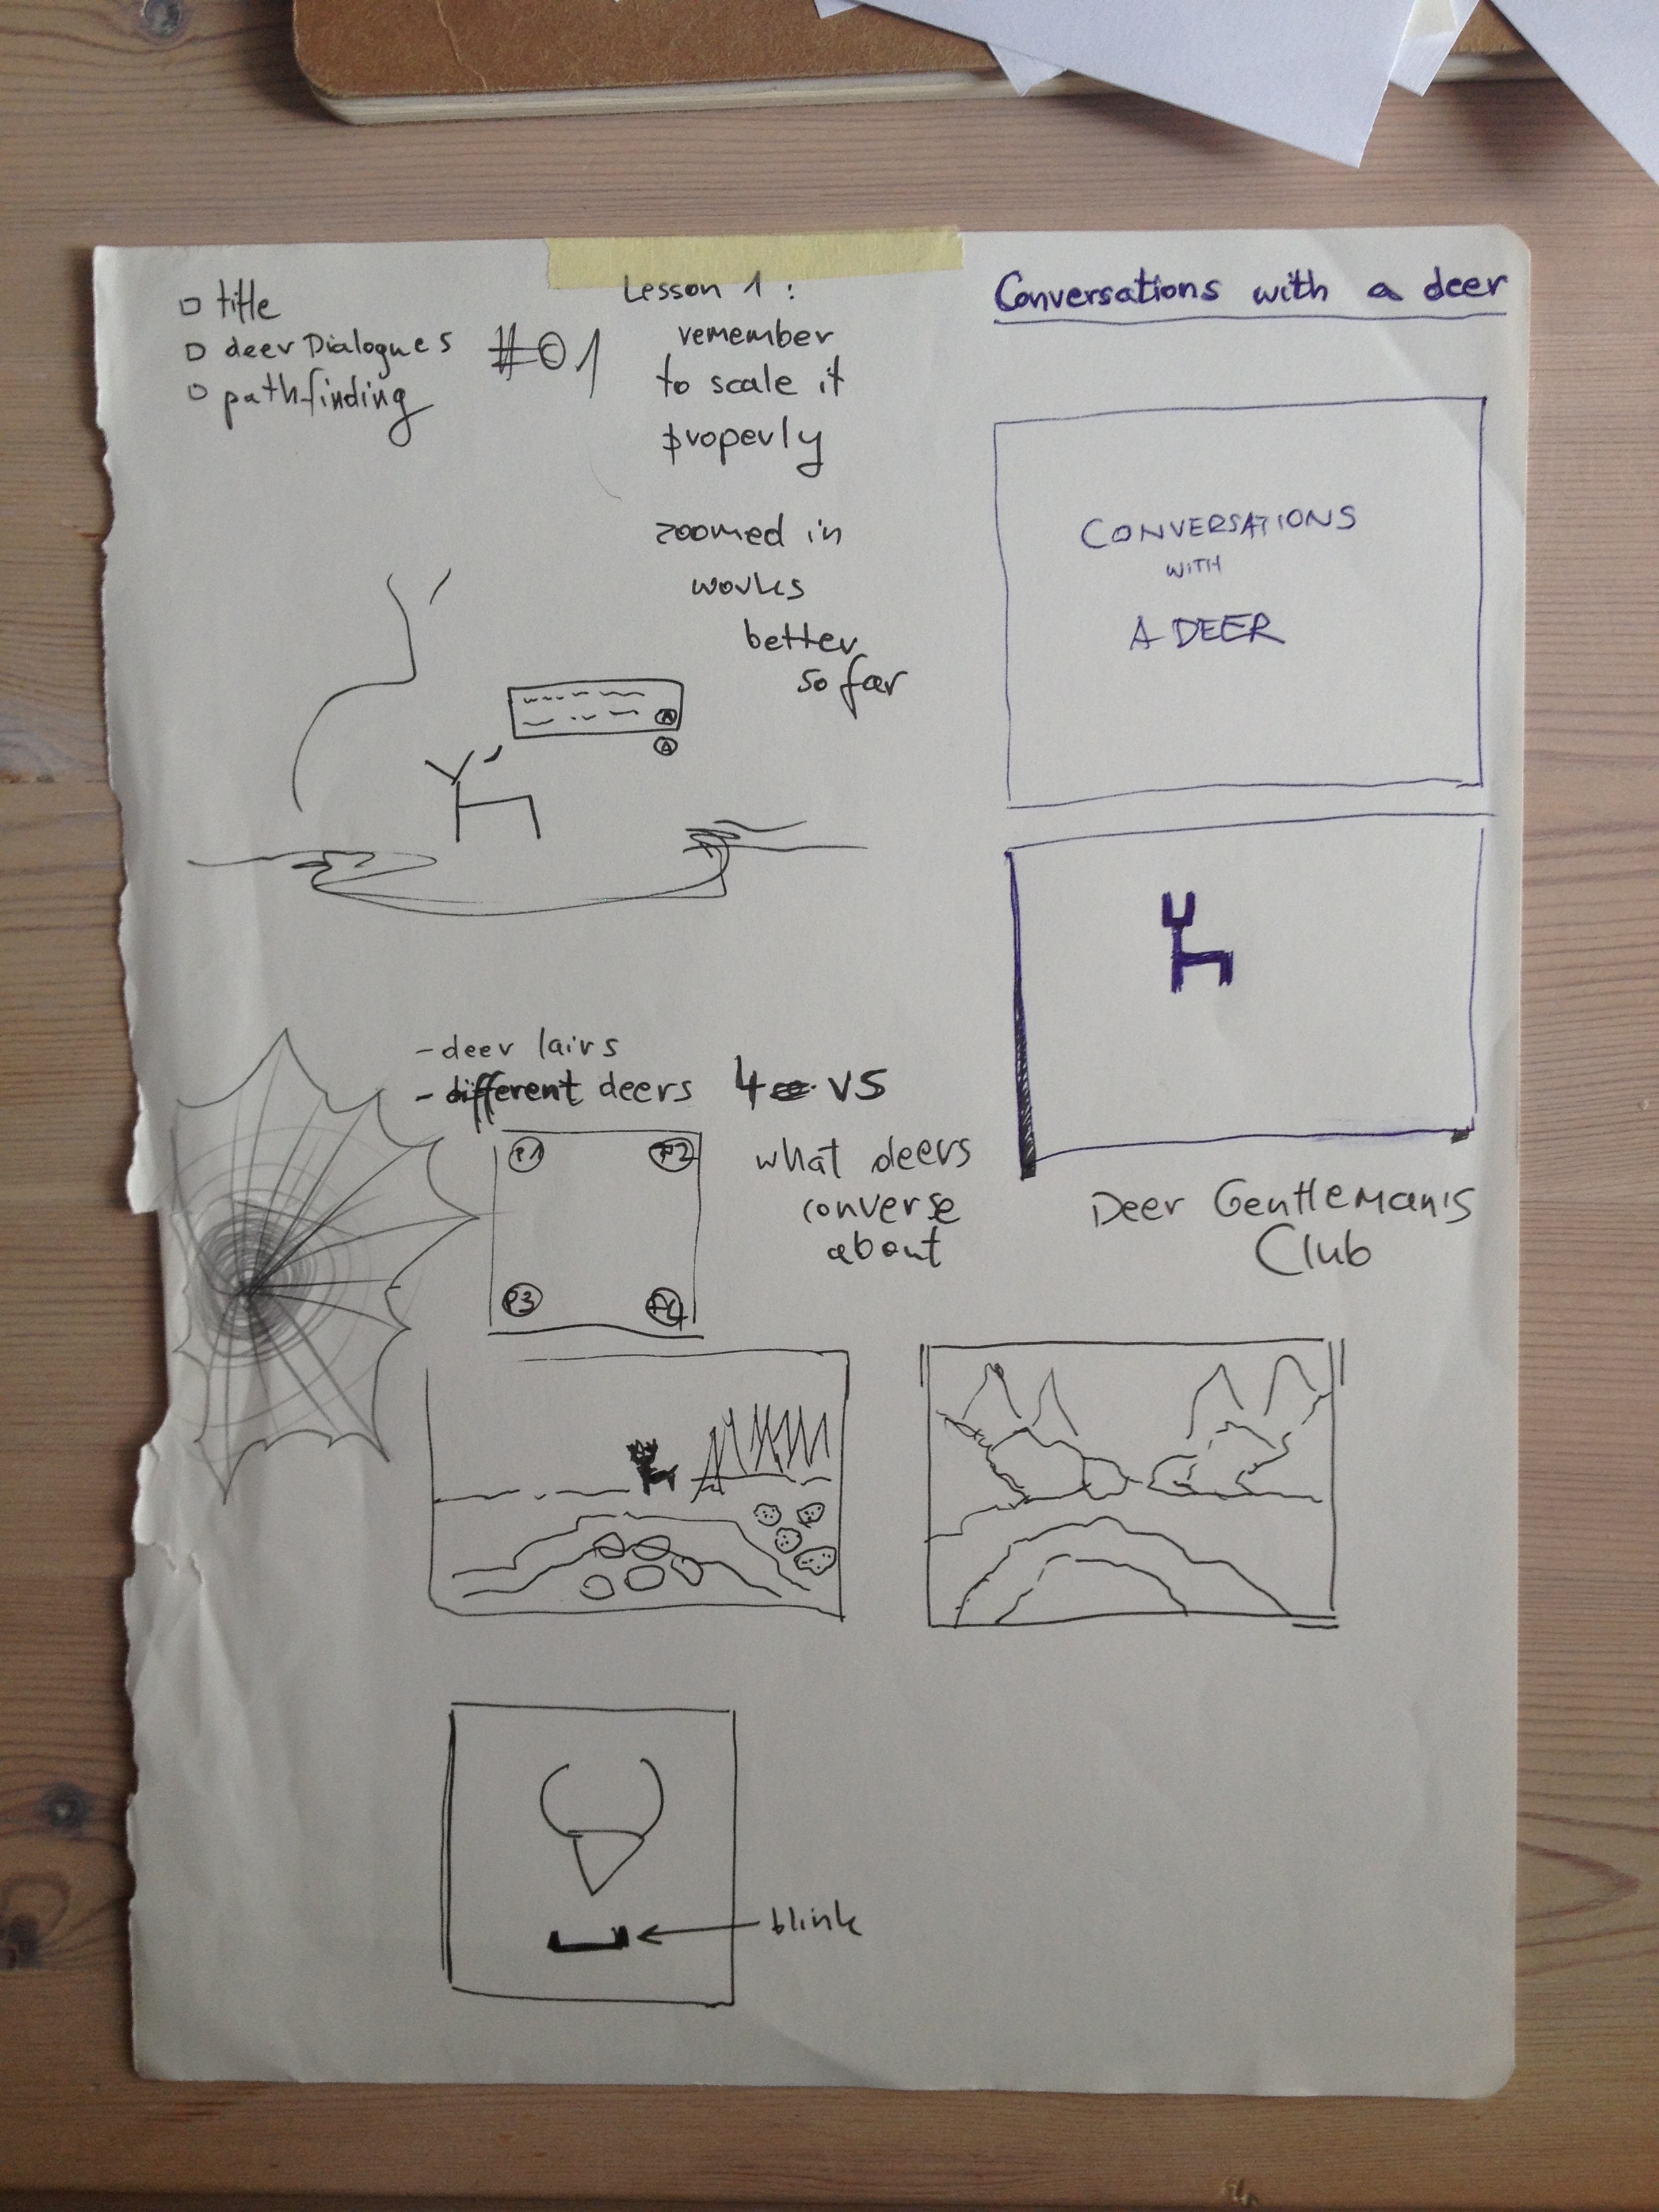 title
deer Dialogues
pathfinding
#01
Lesson 1 :
remember
to scale it
properly
zoomed in
works
better
so far
Conversations with a deer
CONVERSATIONS
WITH
A DEER
A
A
- deer lairs
- different deers
4 VS
P1 P2
P3 P4
what deers
converse
about
Deer Gentlemans
Club
blink